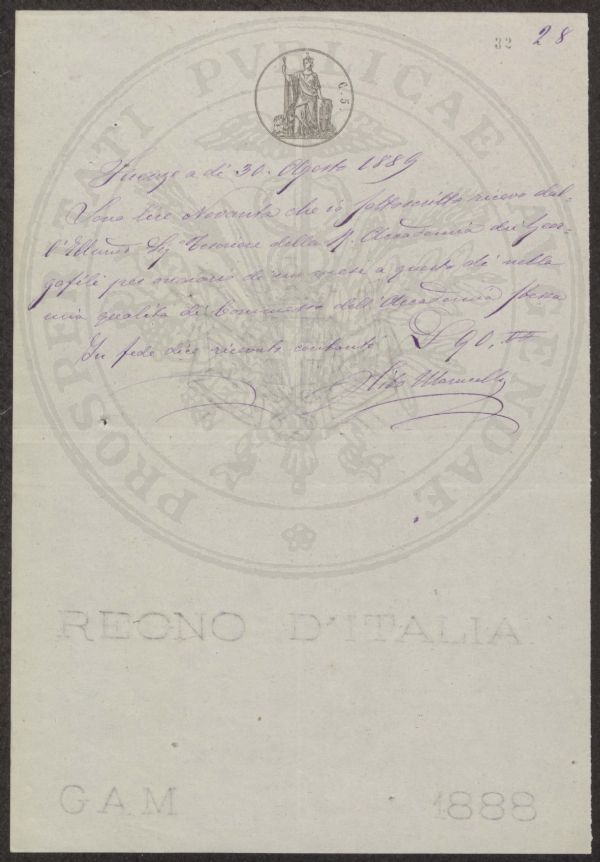 32 28
C. 5
Firenze a dì 30. Agosto 1889
Sono lire Novanta che io sottoscritto ricevo dal-
l'Illmo Sig Tesoriere della R. Accademia dei Geor-
gofili per onorario di un mese a questo dì nella
mia qualità di Commesso dell'Accademia stessa
In fede dico ricevute contanti £ 90,
Aido
PROSPERITATI PVBLICAE AVGENDAE
REGNO D'ITALIA
GAM 1888